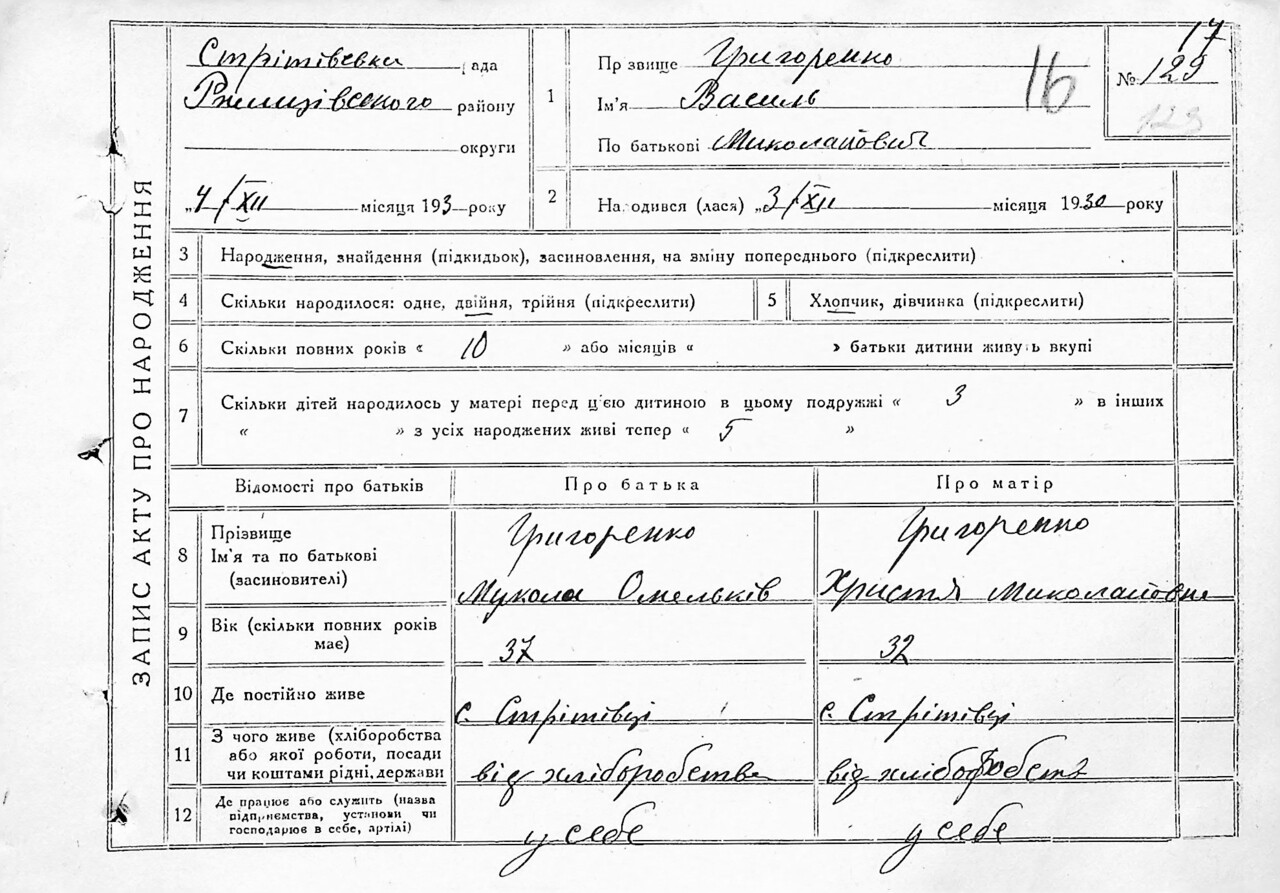 ЗАПИС АКТУ ПРО НАРОДЖЕННЯ
17
Стрітівська рада
Ржищівського району
округи
"4/XII місяця 193 року
1
Прізвище Григоренко
Ім'я Василь
По батькові Миколайович
16
№ 129
123
2
Народився (лася) "3/XII місяця 1930 року
3 Народження, знайдення (підкидьок), засиновлення, на зміну попереднього (підкреслити)
4 Скільки народилося: одне, двійня, трійня (підкреслити)
5 Хлопчик, дівчинка (підкреслити)
6 Скільки повних років « 10 » або місяців « » батьки дитини живуть вкупі
7 Скільки дітей народилось у матері перед ц'єю дитиною в цьому подружжі « 3 » в інших
« » з усіх народжених живі тепер « 5 »
Відомості про батьків Про батька Про матір
8 Прізвище
Ім'я та по батькові
(засиновителі)
Григоренко
Микола Омельків
Григоренко
Христя Миколайовна
9 Вік (скільки повних років
має)
37 32
10 Де постійно живе с. Стрітівці с. Стрітівці
11 З чого живе (хліборобства
або якої роботи, посади
чи коштами рідні, держави
від хліборобства від хліборобств
12 Де працює або служить (назва
підприємства, установи чи
господарює в себе, артілі)
у себе у себе